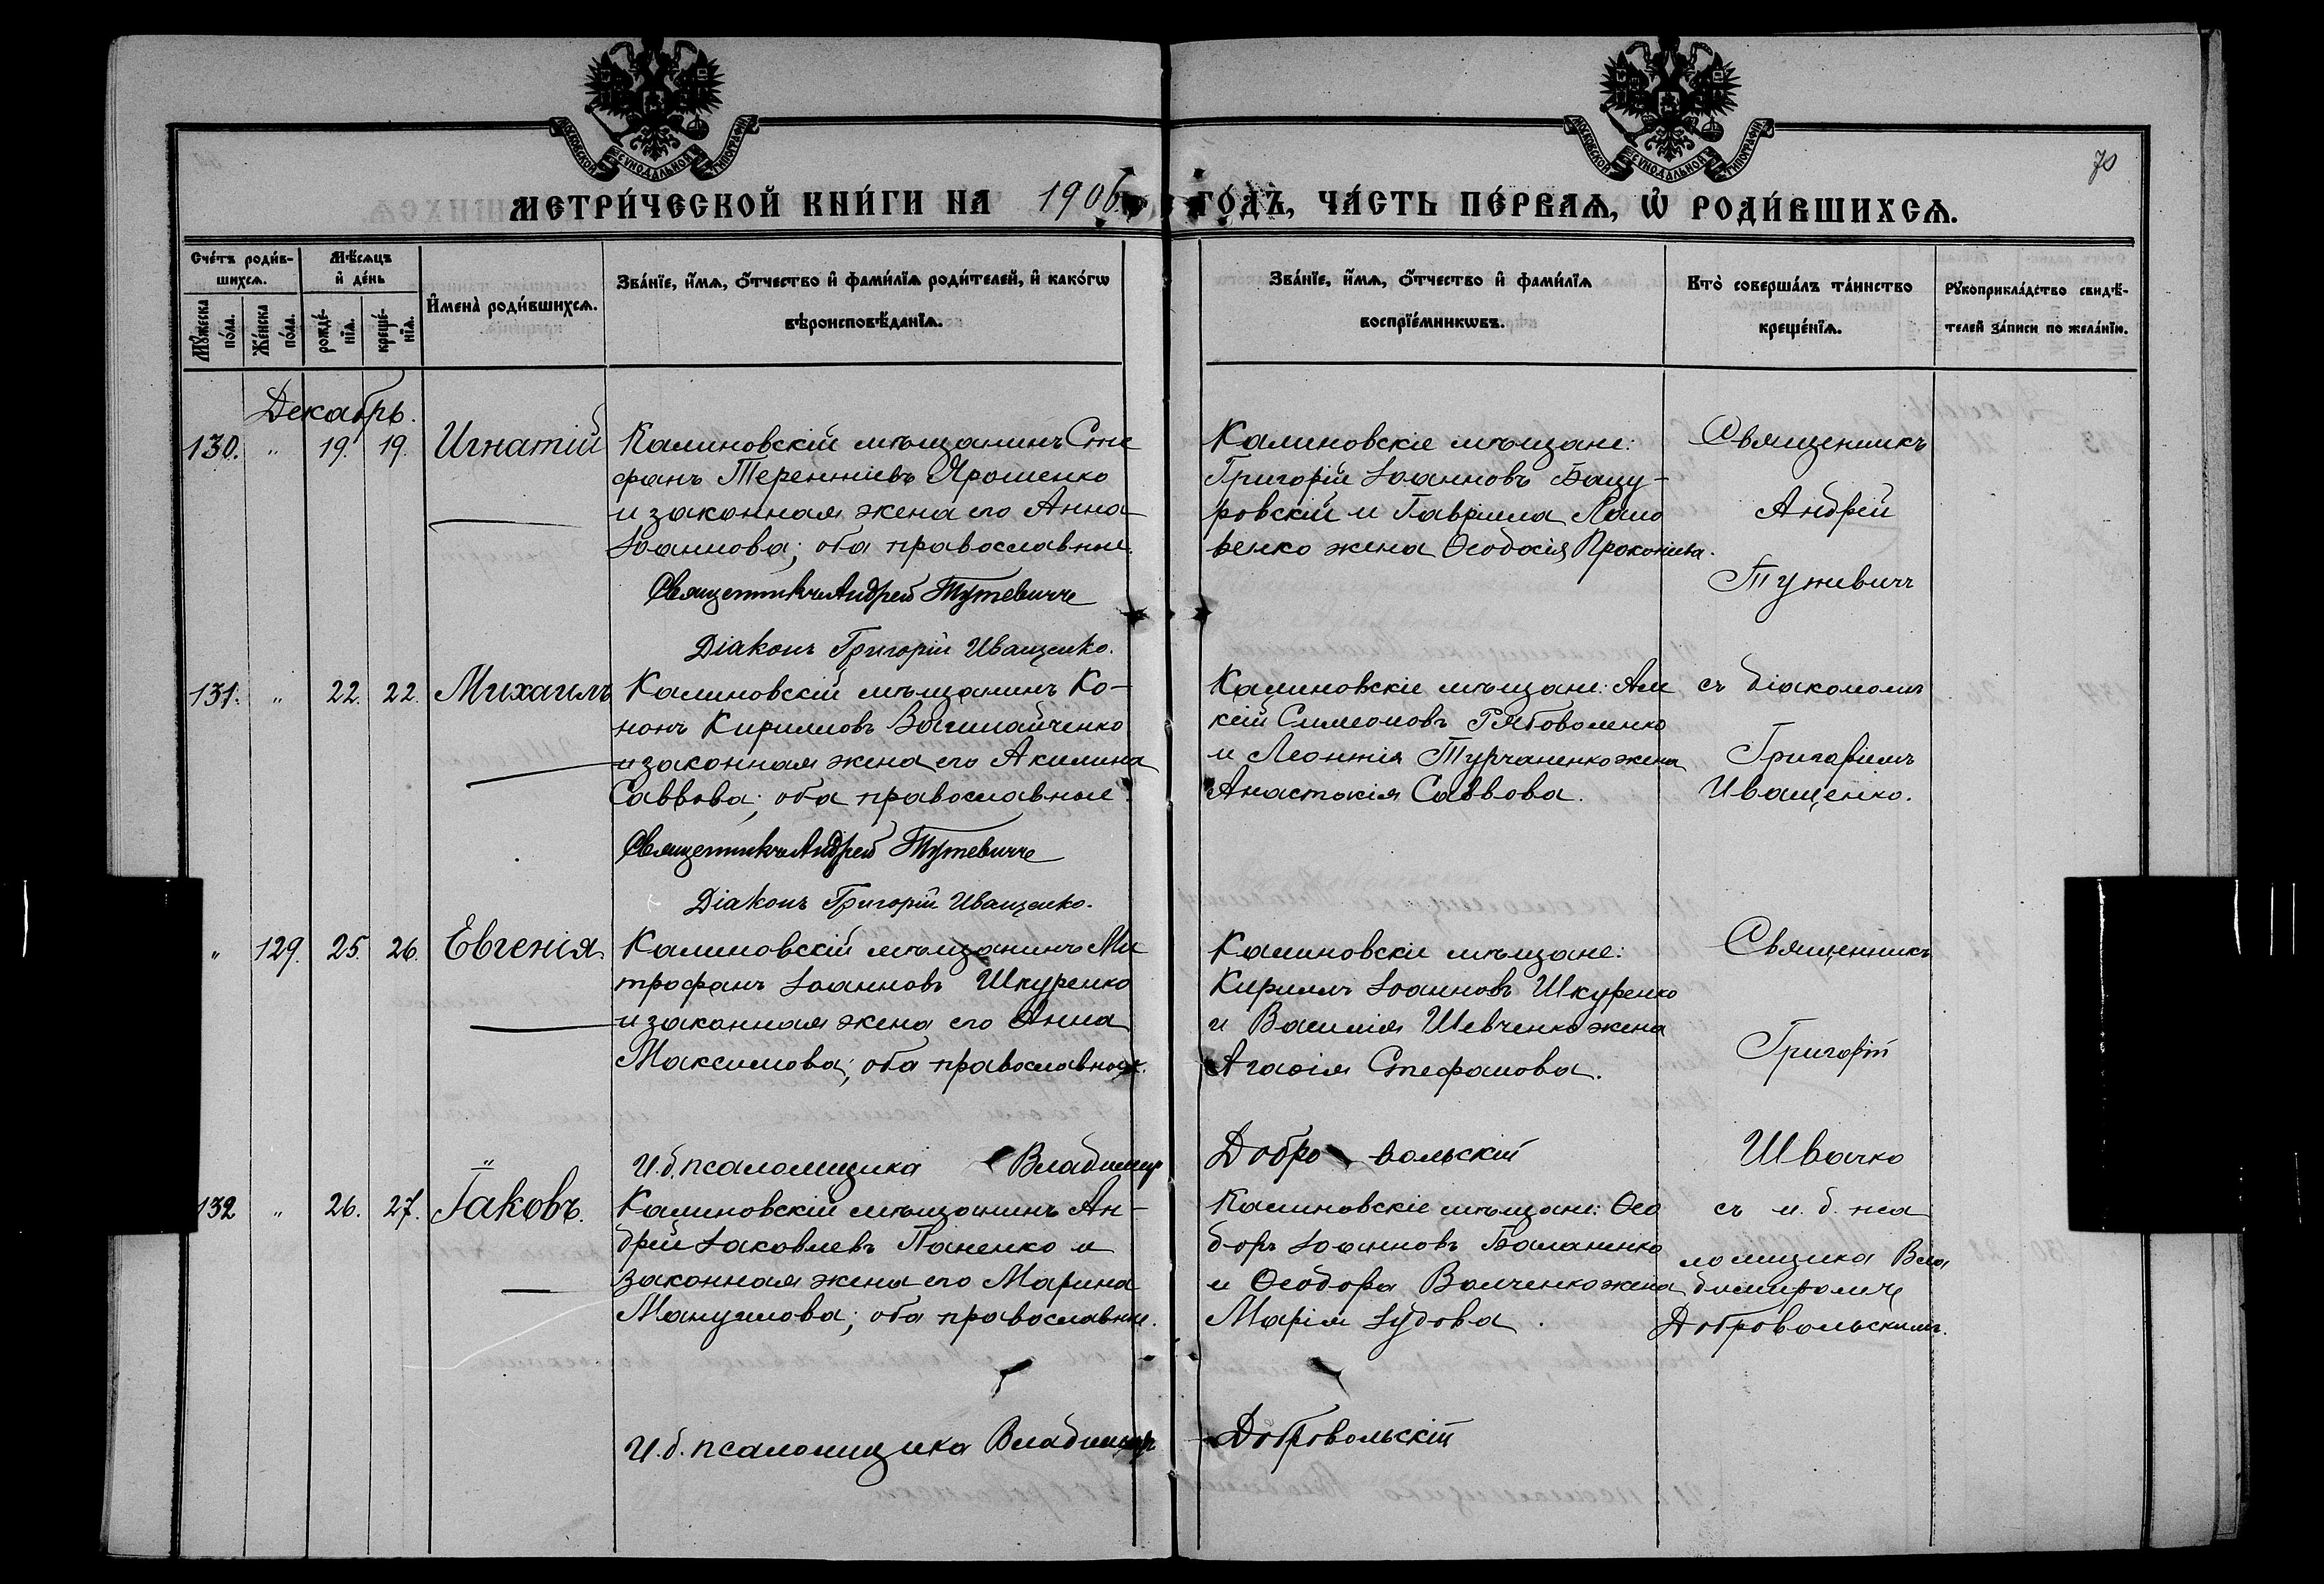 МОСКОВСКОЙ СѴНОДАЛЬНОЙ ТИПОГРАФІИ
МОСКОВСКОЙ СѴНОДАЛЬНОЙ ТИПОГРАФІИ
70
МЕТРИ́ЧЕСКОЙ КНИ́ГИ НА 1906 ГО́ДЪ, ЧА́СТЬ ПЕ́РВАѦ, Ѡ҆ РОДИ́ВШИХСѦ.
Счє́тъ роди́в-
шихсѧ.
Мѣ́сѧцъ
и҆ дє́нь
Мꙋ́жєска по́ла.
Жє́нска по́ла.
рождє́-нїѧ.
крєщє́-нїѧ.
И҆мєна̀ роди́вшихсѧ.
Зва́нїє, и҆́мѧ, ѻ҆́тчєство и҆ фами́лїѧ роди́тєлєй, и҆ како́гѡ
вѣроисповѣ́данїѧ.
Зва́нїє, и҆́мѧ, ѻ҆́тчєство и҆ фами́лїѧ
воспрїє́мникѡвъ.
Кто̀ совєрша́лъ та́инство
крєщє́нїѧ.
Рꙋкоприкла́дство свидѣ́-
тєлєй за́писи по жєла́нїю.
Декабрь.
130. " 19. 19. Игнатій
Калиновскій мѣщанинъ Сте
фанъ Терентіевъ Ярошенко
и законная жена его Анна
Іоаннова; оба православные.
Священникъ Андрей Тутевичъ
Діаконъ Григорій Иващенко.
Калиновскіе мѣщане:
Григорій Іоанновъ Бацу-
ровскій и Гавриила
жена Ѳеодосія Прокопіева.
Священникъ
Андрей
Тутевичъ
131. " 22. 22. Михаилъ
Калиновскій мѣщанинъ Ко-
нонъ Кирилловъ
и законная жена его Акилина
Саввова; оба православные.
Священникъ Андрей Тутевичъ
Діаконъ Григорій Иващенко.
Калиновскіе мѣщане:
Симеоновъ Рябоволенко
и Леонтія Турчаненко жена
Анастасія Саввова.
съ діакономъ
Григоріемъ
Иващенко.
" 129. 25. 26. Евгенія
Калиновскій мѣщанинъ Ми
трофанъ Іоанновъ Шкуренко
и законная жена его Анна
Максимова; оба православные.
И. д. псаломщика Владимир Добровольскій
Калиновскіе мѣщане:
Кириллъ Іоанновъ Шкуренко
и Василія Шевченко жена
Агаѳія Стефанова.
Священникъ
Григорій
Швачко
132 " 26. 27. Іаковъ.
Калиновскій мѣщанинъ Ан-
дрей Іаковлевъ Паненко и
законная жена его Марина
Мануилова; оба православные.
И. д. псаломщика Владимир Добровольскій
Калиновскіе мѣщане: Ѳео
доръ Іоанновъ Баланенко
и Ѳеодора Волченко жена
Марія Іудова.
съ и. д. пса
ломщика Вла
димиромъ
Добровольскимъ.